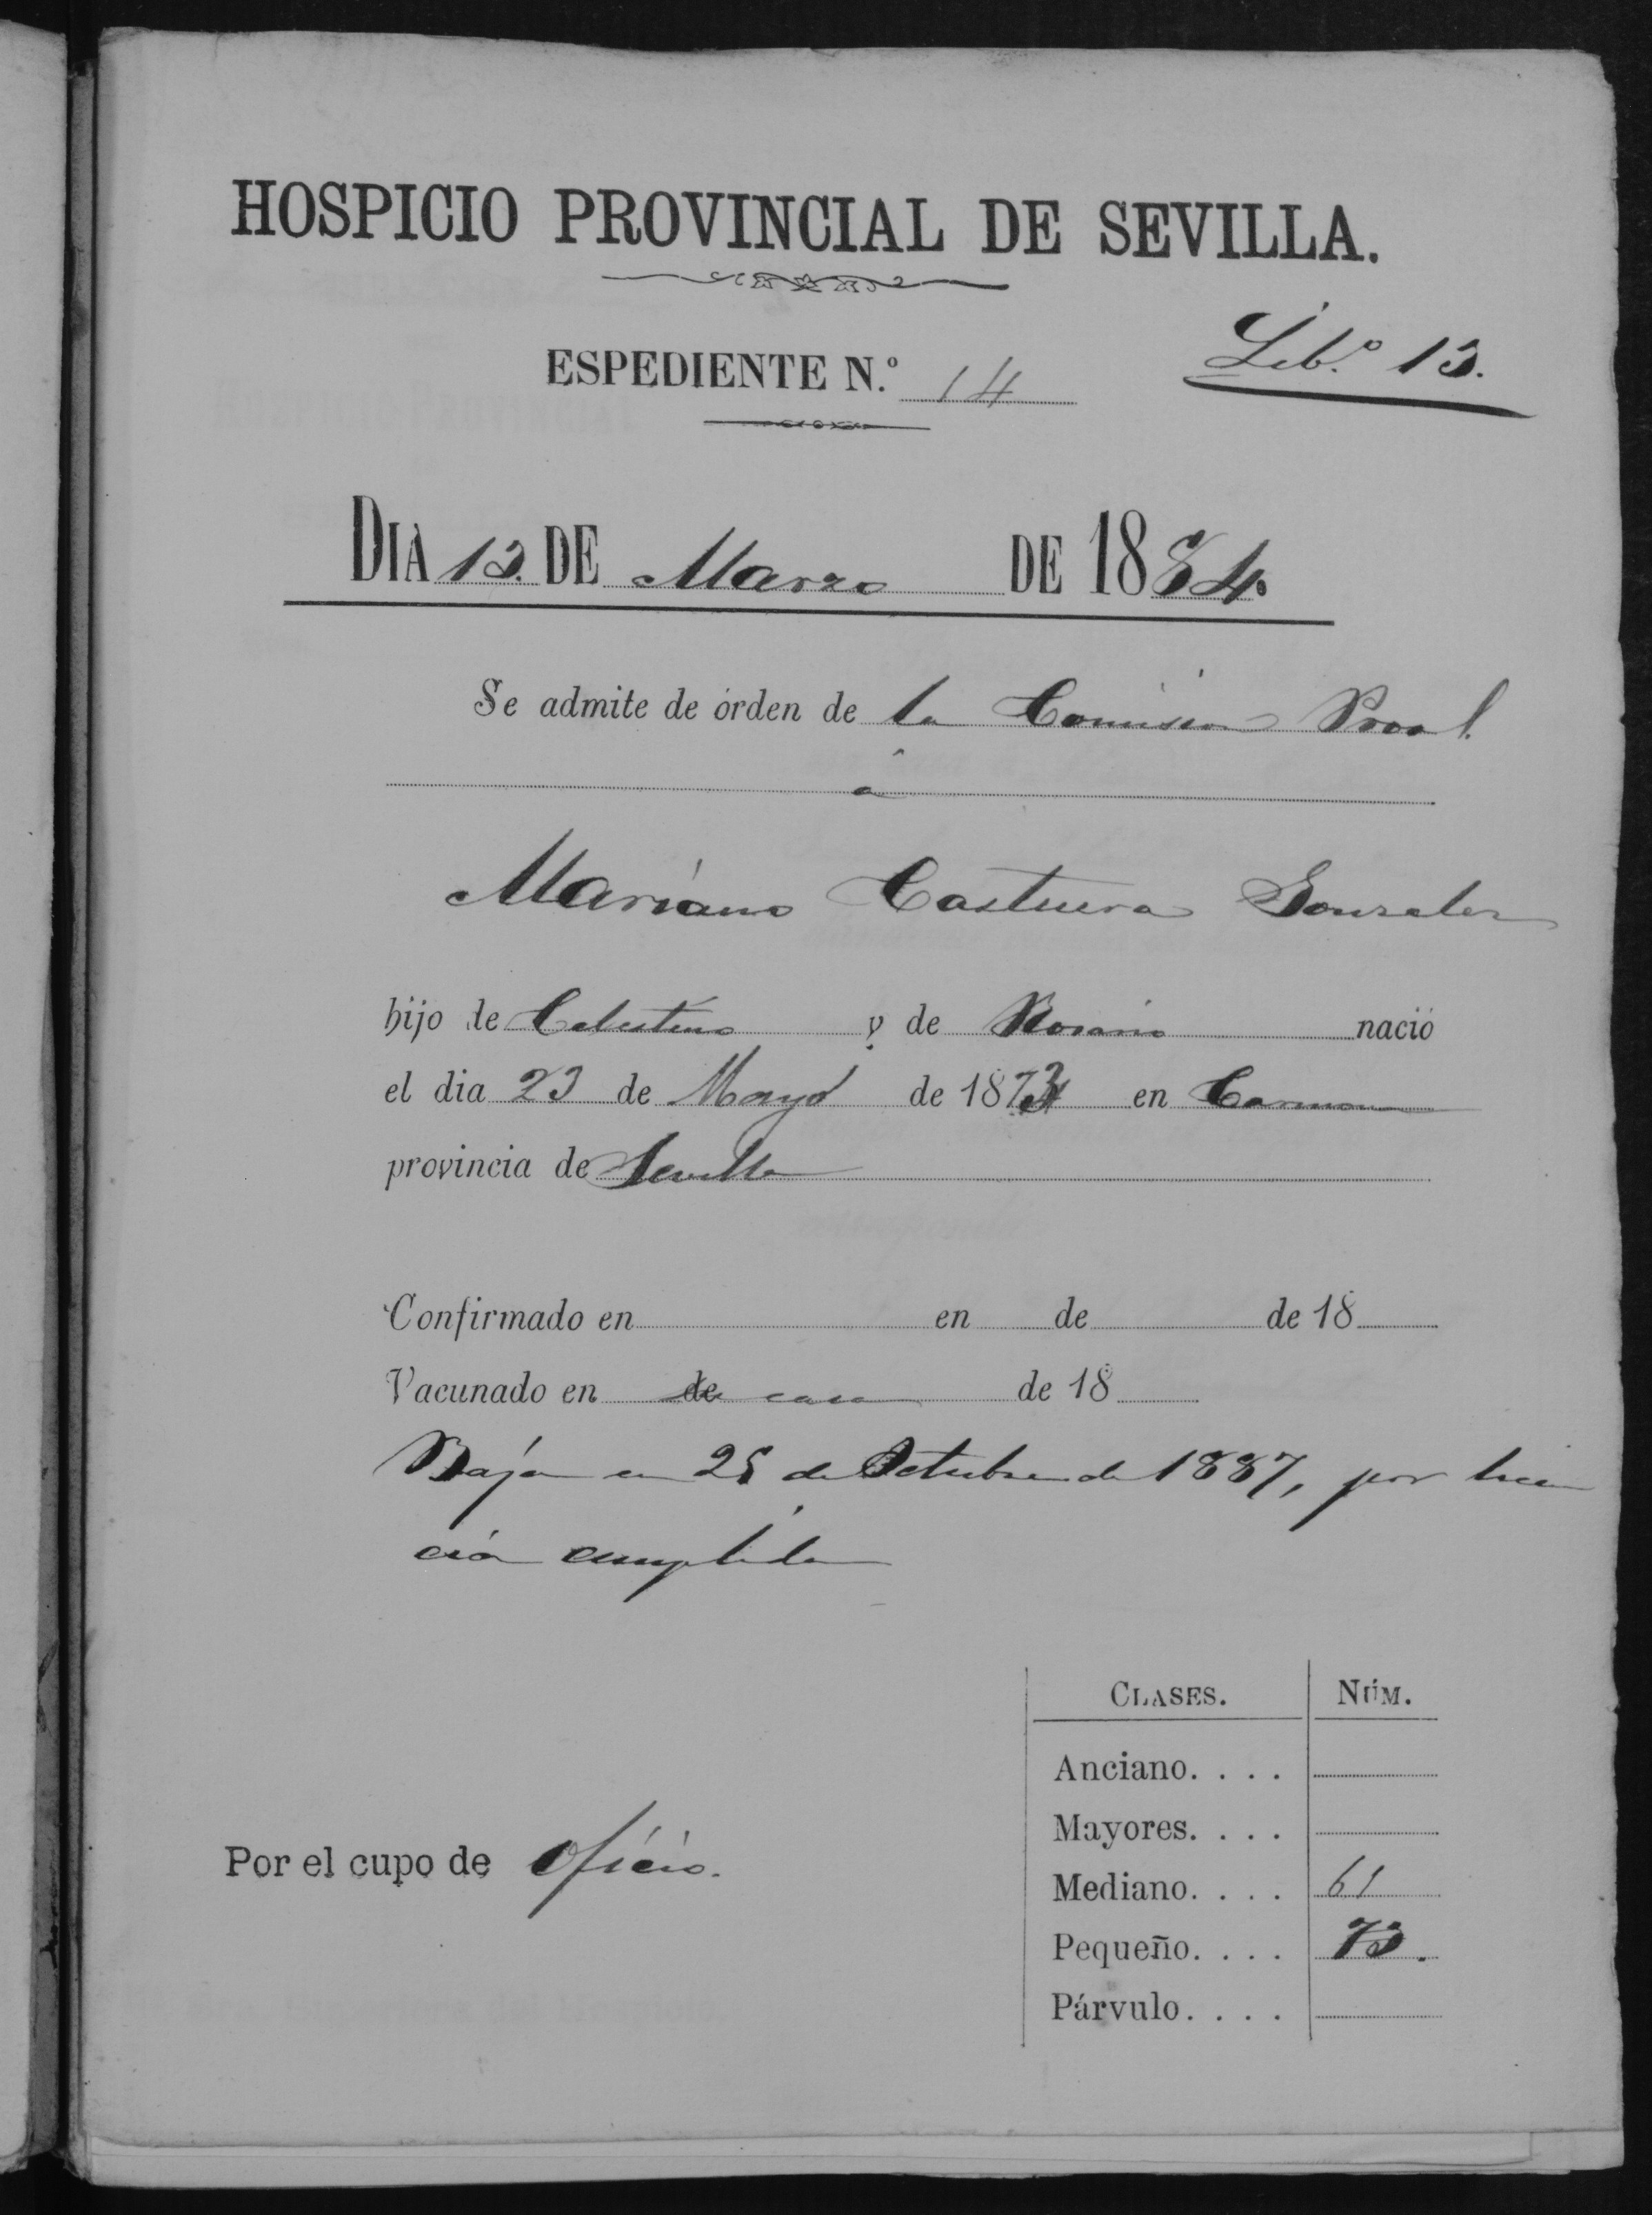 HOSPICIO PROVINCIAL DE SEVILLA.
ESPEDIENTE N.º 14
Lib.º 13.
DIA 13. DE Marzo DE 1884.
Se admite de órden de la Comision Proval.
á
Mariano Castuera Gonzalez
hijo de Celestino y de Rosario nació
el dia 23 de Mayo de 1873 en Carmona
provincia de Sevilla
Confirmado en en de de 18
Vacunado en de casa de 18
Baja en 25 de Octubre de 1887, por licen
cia cumplida
CLASES. NÚM.
Anciano. . . .
Mayores. . . .
Por el cupo de Oficio.
Mediano. . . . 61
Pequeño. . . . 73.
Párvulo. . . .